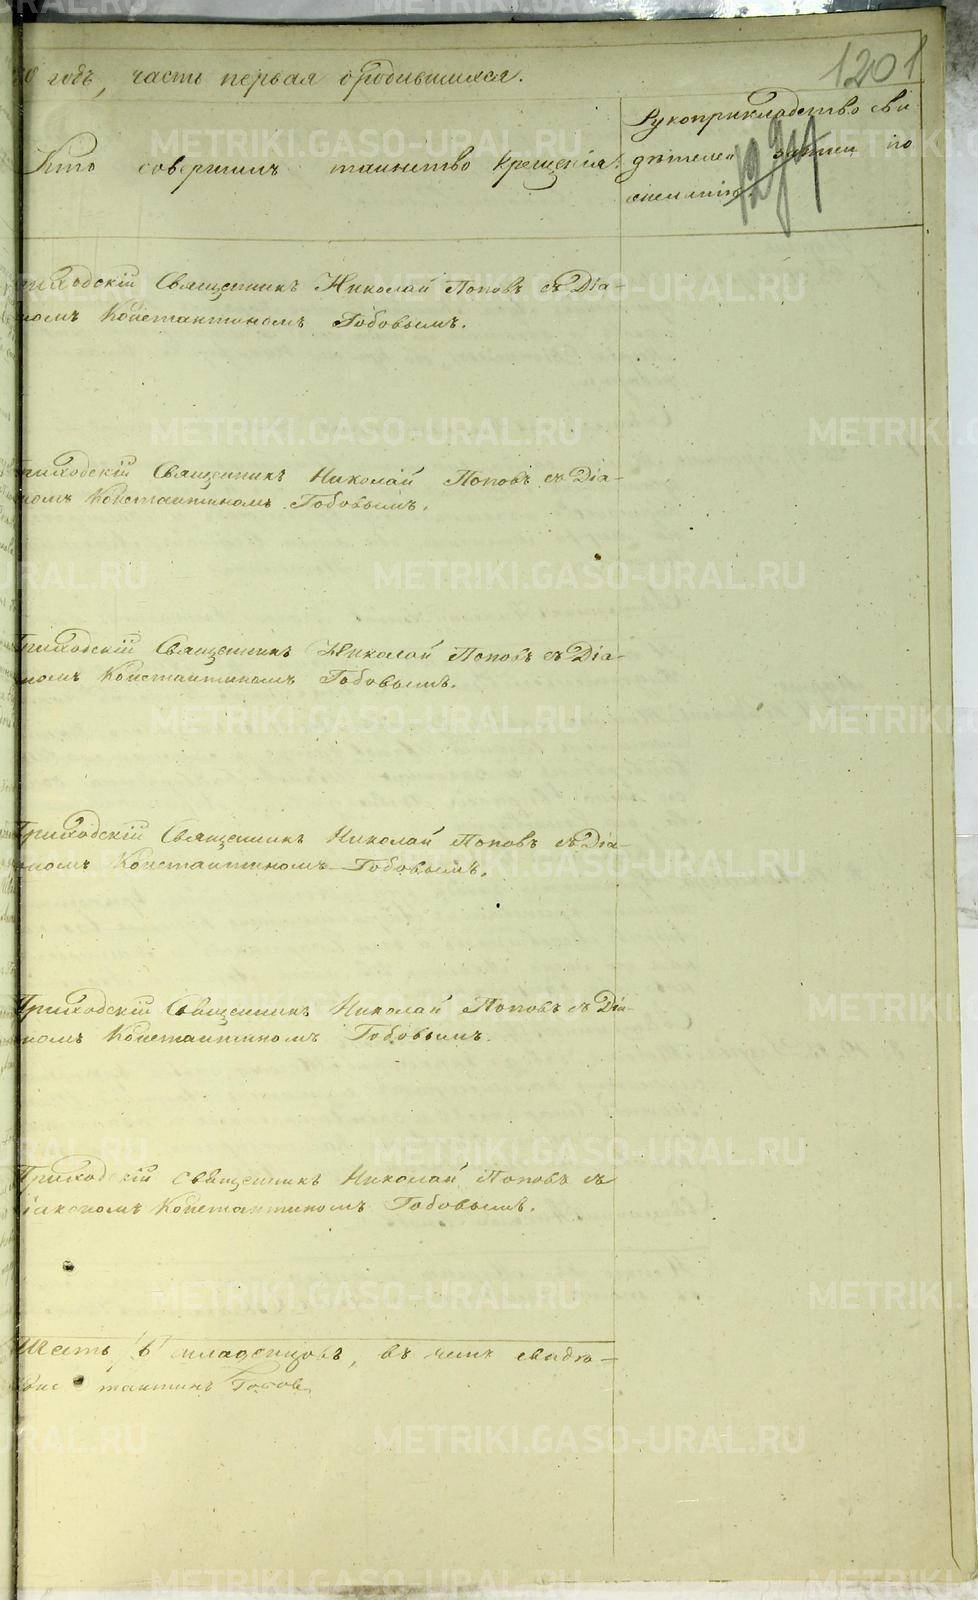 1201
годъ, часть первая о родившихся.
Кто совершилъ таинство крещенія.
Рукоприкладство сви
дѣтелей записи по
1294
приходскій Священникъ Николай Поповъ съ Діа-
номъ Константиномъ Гобовымъ.
приходскій Священникъ Николай Поповъ съ Діа-
номъ Константиномъ Гобовымъ.
Приходскій Священникъ Николай Поповъ съ Діа-
номъ Константиномъ Гобовымъ.
Приходскій Священникъ Николай Поповъ съ Діа-
кономъ Константиномъ Гобовымъ.
Приходскій Священникъ Николай Поповъ съ Діа-
кономъ Константиномъ Гобовымъ.
Приходскій Священникъ Николай Поповъ съ
іакономъ Константиномъ Гобовымъ.
Шесть /6/ младенцовъ, въ чемъ свидѣ-
тантинъ Гобов
METRIKI.GASO-URAL.RU